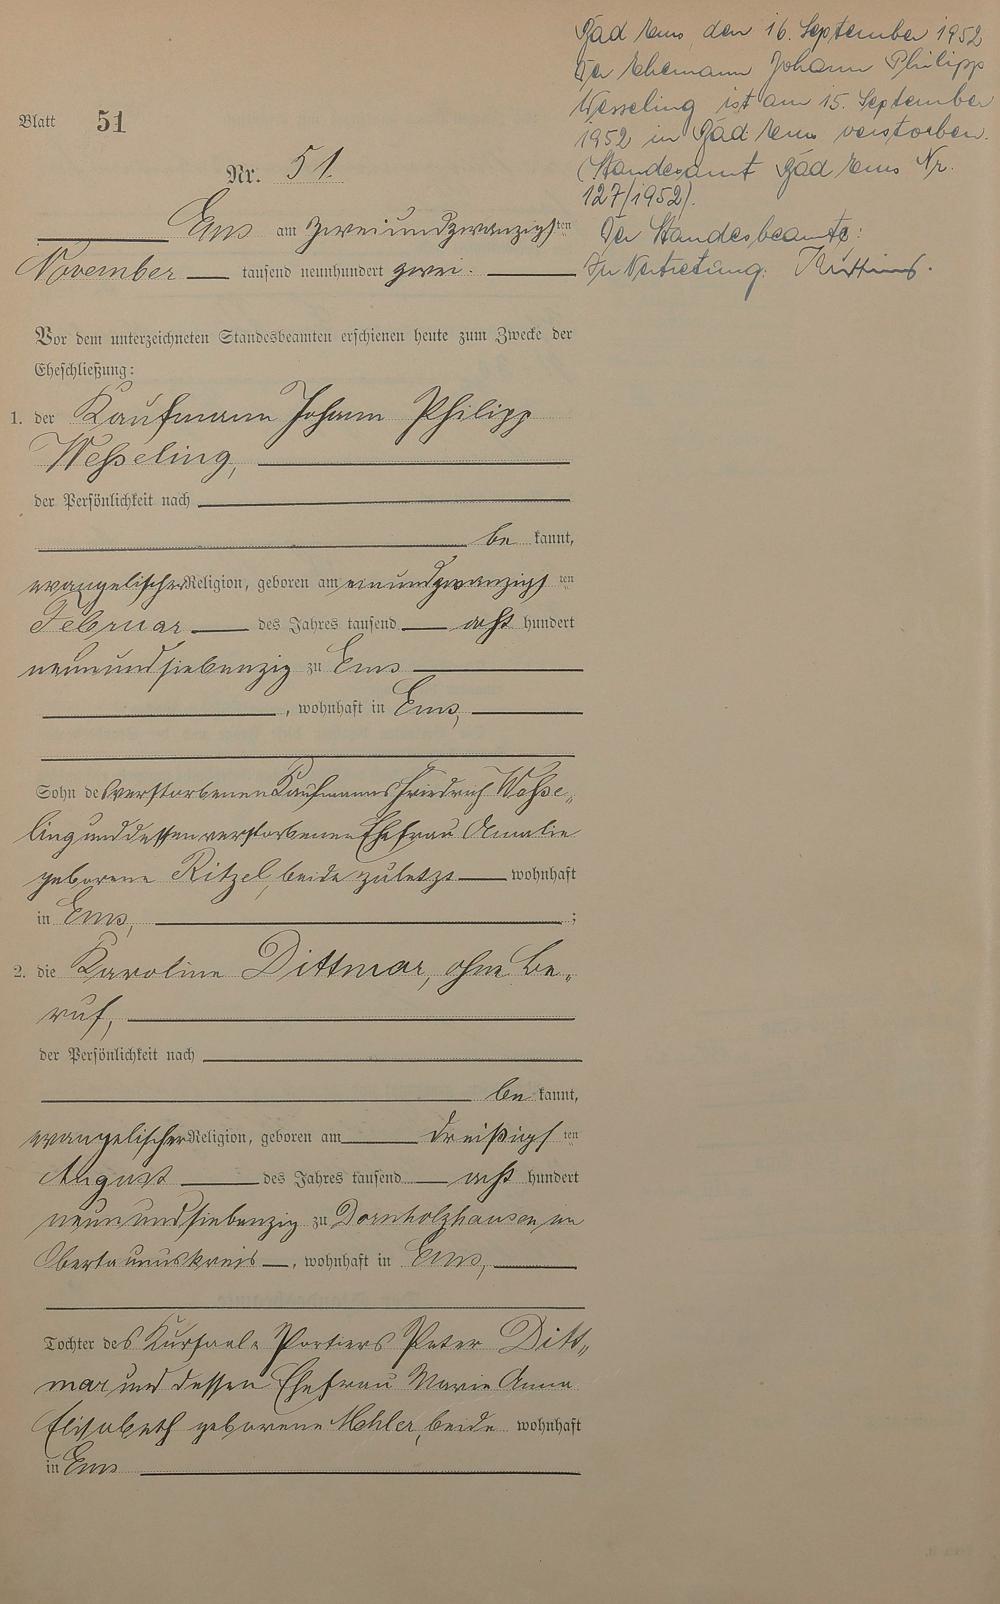 Blatt 51
Bad Ems, den 16. September 1952
Der Ehemann Johann Philipp
Wesseling ist am 15. September
1952 in Bad Ems verstorben.
(Standesamt Bad Ems Nr.
127/1952).
Der Standesbeamte:
In Vertretung:
Nr. 51.
Ems am zweiundzwanzigsten
November tausend neunhundert zwei.
Vor dem unterzeichneten Standesbeamten erschienen heute zum Zwecke der
Eheschließung:
1. der Kaufmann Johann Philipp
Weßeling,
der Persönlichkeit nach
be kannt,
evangelischer Religion, geboren am einundzwanzigsten
Februar des Jahres tausend acht hundert
neunundsiebenzig zu Ems
, wohnhaft in Ems,
Sohn des verstorbenen Kaufmanns Friedrich Weße-
ling und dessen verstorbenen Ehefrau Amalie
geborene Ritzel, beide zuletzt wohnhaft
in Ems, ;
2. die Karoline Dittmar, ohne Be-
ruf,
der Persönlichkeit nach
be kannt,
evangelischer Religion, geboren am dreißigsten
August des Jahres tausend acht hundert
neunundsiebenzig zu Dornholzhausen im
Obertaunuskreis, wohnhaft in Ems,
Tochter des Kursaal-Portiers Peter Ditt-
mar und dessen Ehefrau Marie Anna
Elisabeth geborene Mohler, beide wohnhaft
in Ems